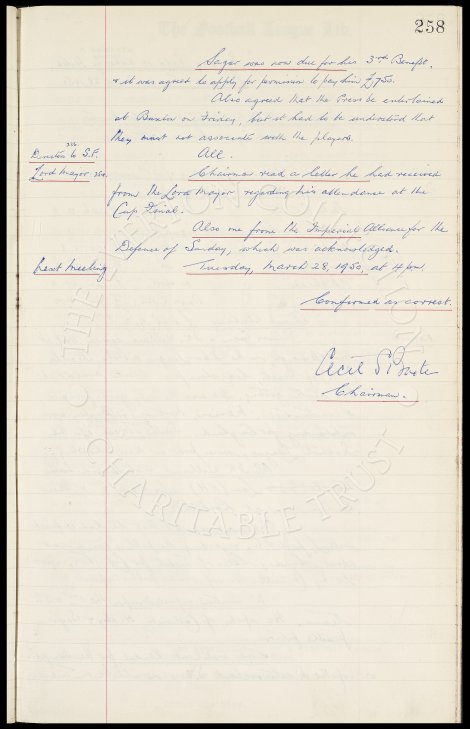 258
Sagar was now due for his 3rd Benefit,
& it was agreed to apply for permission to pay him £750.
Also agreed that the Press be entertained
at Buxton on Friday, but it had to be understood that
they must not associate with the players.
to S.F. All.
Lord Mayor Chairman read a letter he had received
from the Lord Mayor regarding his attendance at the
Cup Final.
Also one from the Imperial Alliance for the
Defence of Sunday, which was acknowledged.
Next Meeting Tuesday, March 28, 1950, at 4 pm.
Confirmed as correct.
Cecil S. Baxter
Chairman.
THE EVERTON COLLECTION
CHARITABLE TRUST